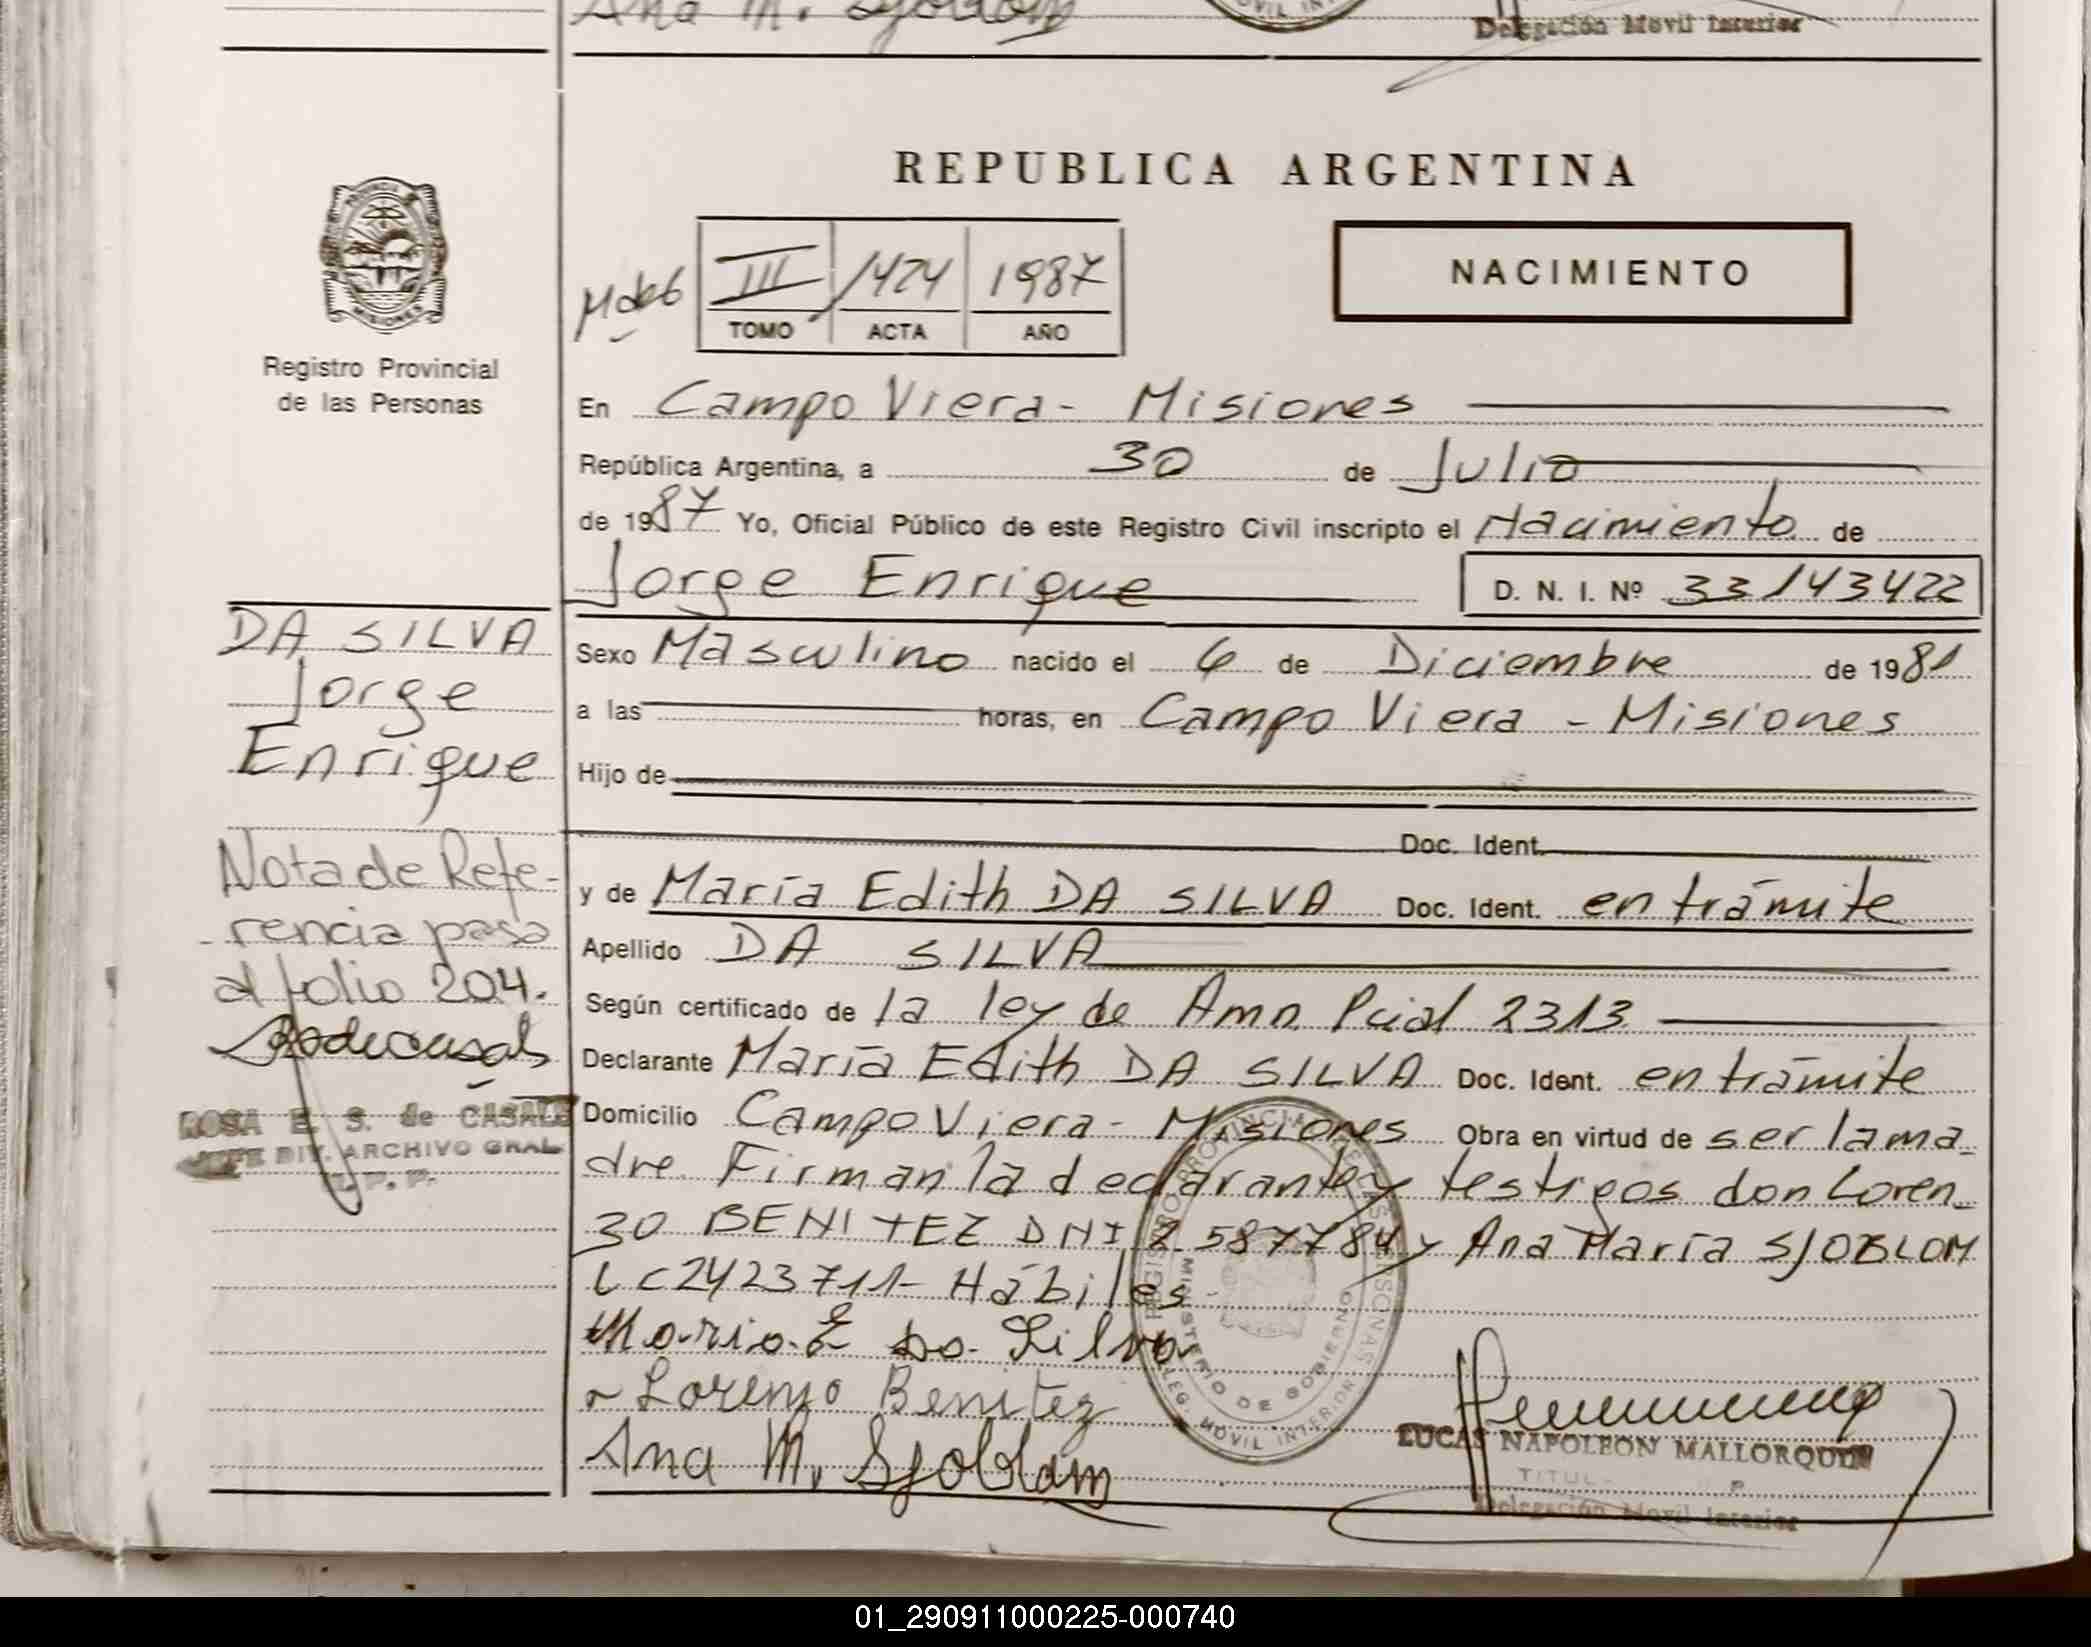 Ana M. Sjoblom
Delegación Movil Interior
REPUBLICA ARGENTINA
III 1424 1987
TOMO ACTA AÑO
NACIMIENTO
PROVINCIA DE
MISIONES
Registro Provincial
de las Personas
En Campo Viera - Misiones
República Argentina, a 30 de Julio
de 1987 Yo, Oficial Público de este Registro Civil inscripto el Nacimiento de
Jorge Enrique D. N. I. Nº 33143422
DA SILVA
Jorge
Enrique
Sexo Masculino nacido el 6 de Diciembre de 1981
a las horas, en Campo Viera - Misiones
Hijo de
Doc. Ident.
y de María Edith DA SILVA Doc. Ident. en trámite
Apellido DA SILVA
Según certificado de la ley de Amn Pcial 2313
Declarante María Edith DA SILVA Doc. Ident. en trámite
Domicilio Campo Viera - Misiones Obra en virtud de ser la ma
dre. Firman la declarante y testigos don Loren
zo BENITEZ DNI 2587784 y Ana María SJOBLOM
LC2423711- Hábiles
Maria E Da Silva
Lorenzo Benitez
Ana M. Sjoblom
Nota de Refe-
rencia pasa
al folio 204.
ROSA E. S. de CASALS
JEFE DIV. ARCHIVO GRAL
R. P. P.
REGISTRO PROVINCIAL DE LAS PERSONAS
MINISTERIO DE GOBIERNO
DELEG. MOVIL INTERIOR
LUCAS NAPOLEON MALLORQUIN
TITUL
Delegación Movil Interior
01_290911000225-000740